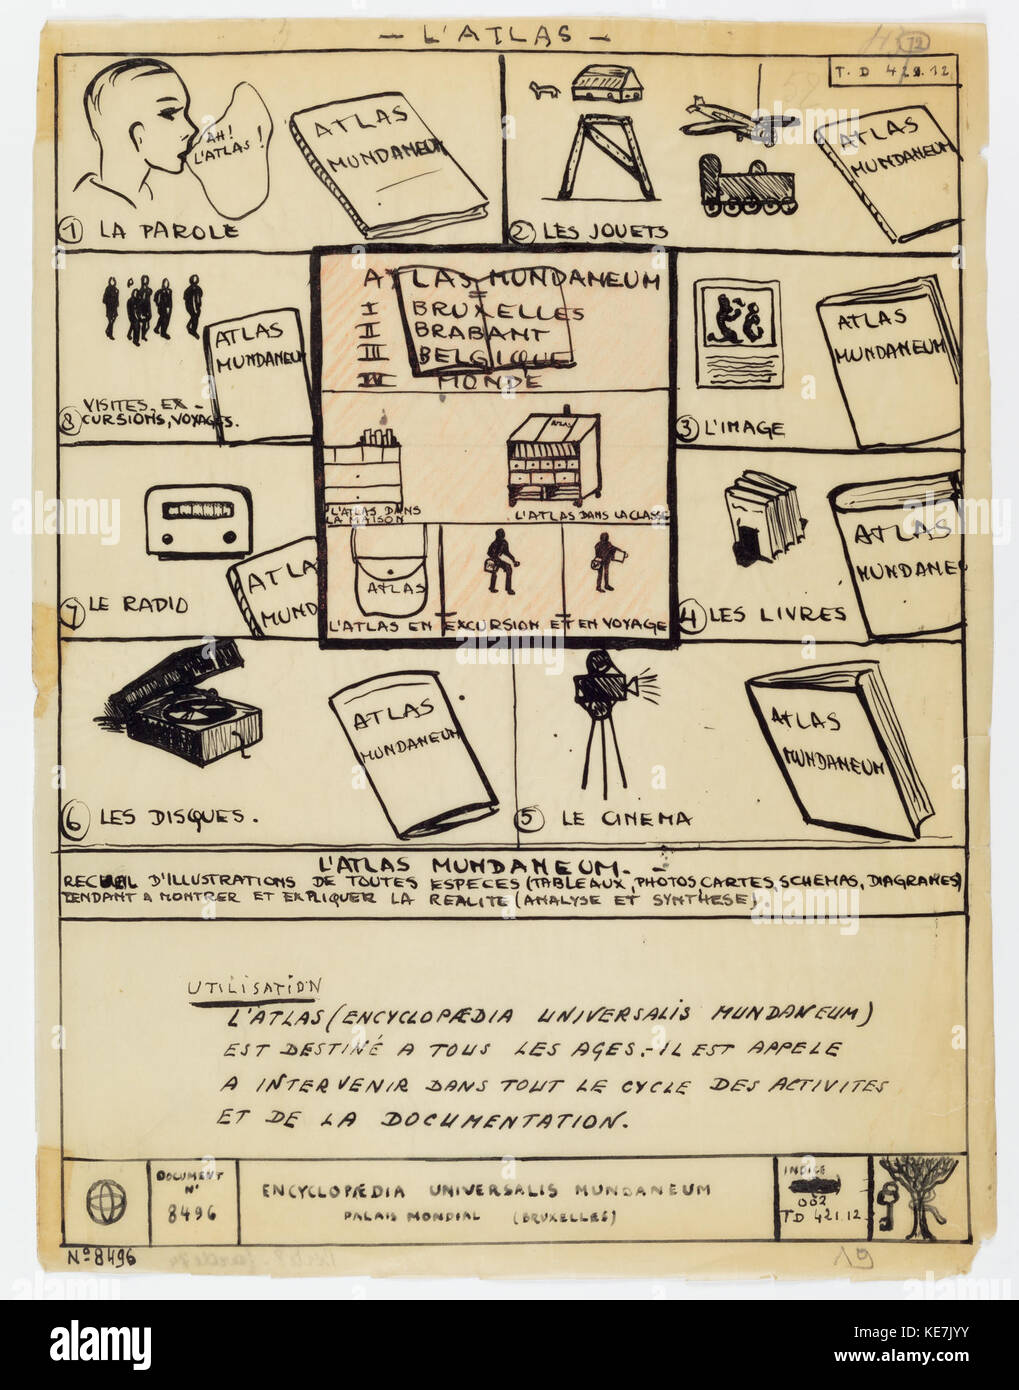 - L'ATLAS -
12
T. D 421.12
AH!
L'ATLAS !
ATLAS
MUNDANEUM
1 LA PAROLE
ATLAS
MUNDANEUM
2 LES JOUETS
ATLAS
MUNDANEUM
8 VISITES, EX-
CURSIONS, VOYAGES.
ATLAS MUNDANEUM
I BRUXELLES
II BRABANT
III BELGIQUE
IV MONDE
ATLAS
L'ATLAS DANS
LA MAISON
L'ATLAS DANS LA CLASSE
ATLAS
L'ATLAS EN EXCURSION ET EN VOYAGE
ATLAS
MUNDANEUM
3 L'IMAGE
ATLA
MUND
7 LE RADIO
ATLAS
MUNDANEU
4 LES LIVRES
ATLAS
MUNDANEUM
6 LES DISQUES.
ATLAS
MUNDANEUM
5 LE CINEMA
L'ATLAS MUNDANEUM. -
RECUEIL D'ILLUSTRATIONS DE TOUTES ESPECES (TABLEAUX, PHOTOS CARTES, SCHEMAS, DIAGRAMES)
TENDANT A MONTRER ET EXPLIQUER LA REALITE (ANALYSE ET SYNTHESE).
UTILISATION
L'ATLAS (ENCYCLOPÆDIA UNIVERSALIS MUNDANEUM)
EST DESTINÉ A TOUS LES AGES.- IL EST APPELE
A INTERVENIR DANS TOUT LE CYCLE DES ACTIVITES
ET DE LA DOCUMENTATION.
DOCUMENT
N°
8496
ENCYCLOPÆDIA UNIVERSALIS MUNDANEUM
PALAIS MONDIAL (BRUXELLES)
INDICE
002
TD 421.12
N° 8496
19
alamy
Image ID: KE7JYY
www.alamy.com